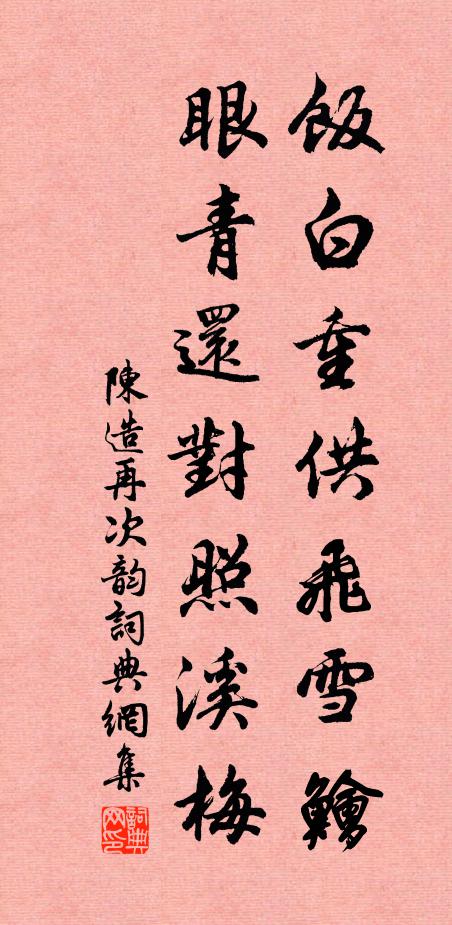 飯白重供飛雪鱠
眼青還對照溪梅
陳造再次韵詞典網集
詞典网印